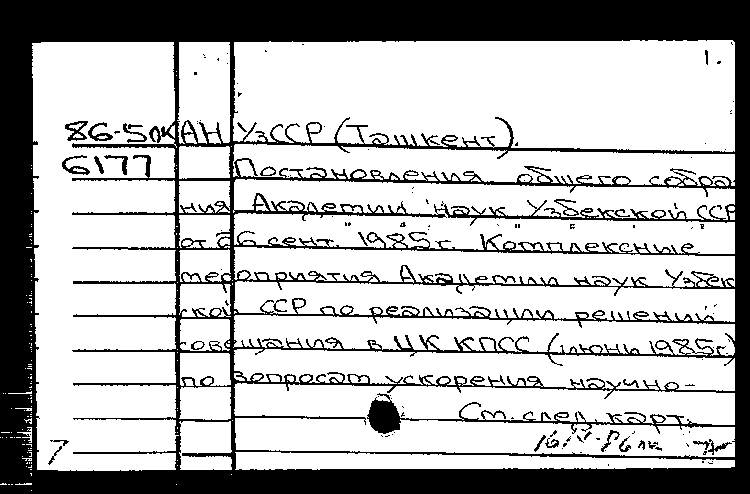 1.
86-5лк АН УзССР (Ташкент).
6177 Постановления общего собра
ния Академии наук Узбекской ССР
от 26 сент. 1985г. Комплексные
мероприятия Академии наук Узбек
ской ССР по реализации решений
совещания в ЦК КПСС (июнь 1985г)
по вопросам ускорения научно-
См. след. карт.
16/IV-86 лк
7